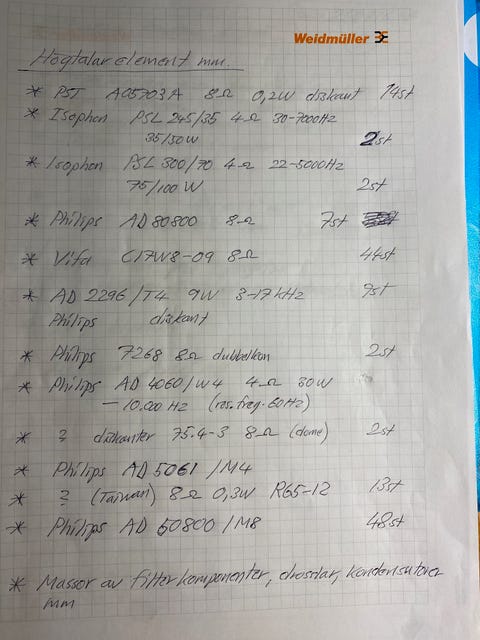 Weidmüller
Högtalarelement mm.
* PST A05703A 8Ω 0,2W diskant 14st
* Isophon PSL 245/35 4Ω 30-7000Hz
35/50W 2st
* Isophon PSL 300/70 4Ω 22-5000Hz
75/100 W 2st
* Philips AD 80800 8Ω 7st
* Vifa C17W8-09 8Ω 44st
* AD 2296/T4 9W 3-17 kHz 9st
Philips diskant
* Philips 7268 8Ω dubbelkon 2st
* Philips AD 4060/W4 4Ω 30W
-10.000 Hz (res.freq. 60Hz)
* ? diskanter 75.4-3 8Ω (dome) 2st
* Philips AD 5061/M4
* ? (Taiwan) 8Ω 0,3W R65-12 13st
* Philips AD 50800/M8 48st
* Massor av filterkomponenter, drosslar, kondensatorer
mm